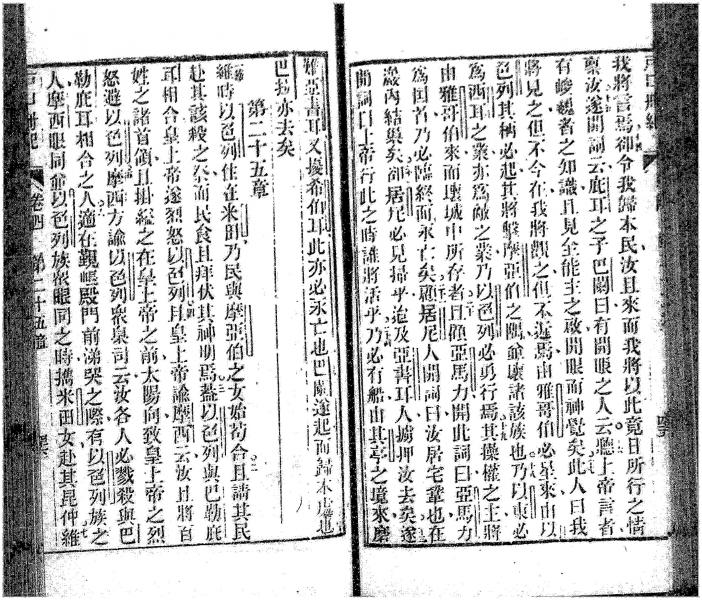 我將言焉卻令我歸本民汝且來而我將以此竟日所行之情
稟汝遂開詞云庇耳之子巴闌曰有開眼之人云聽上帝言者
有嶮魏者之知識且見全能主之啟開眼而神覺矣此人曰我
將見之但不今在我將觀之但不邇焉由雅哥伯必星來由以
色列其柄必起其將擊摩亞伯之隅並壞諸該族也乃以東必
為西耳之業亦為敵之業乃以色列必勇行焉其操權之主將
由雅哥伯來而壞城中所存者且顧亞馬力開此詞曰亞馬力
為回首乃必臨終而永亡矣顧居尼人開詞曰汝居宅鞏也在
巖內結巢矣卻居尼必見掃平迨及亞書耳人擄押汝去矣遂
開詞曰上帝行此之時誰將活乎乃必有船由其亭之境來磨
難亞書耳又擾希伯耳此亦必永亡也巴闌遂起而歸本處也
巴拉亦去矣
第二十五章
維時以色列住在米田乃民與摩亞伯之女始苟合且請其民
赴其該殺之祭而民食且拜伏其神明焉蓋以色列與巴勒庇
耳相合皇上帝遂烈怒以色列且皇上帝諭摩西云汝且將百
姓之諸首領且掛縊之在皇上帝之前太陽向致皇上帝之烈
怒避以色列摩西方諭以色列眾臬司云汝各人必戮殺與巴
勒庇耳相合之人適在覲帳殿門前涕哭之際有以色列族之
人摩西眼同並以色列族眾眼同之時攜米田女赴其昆仲維
戶口冊紀 卷四 第二十五章